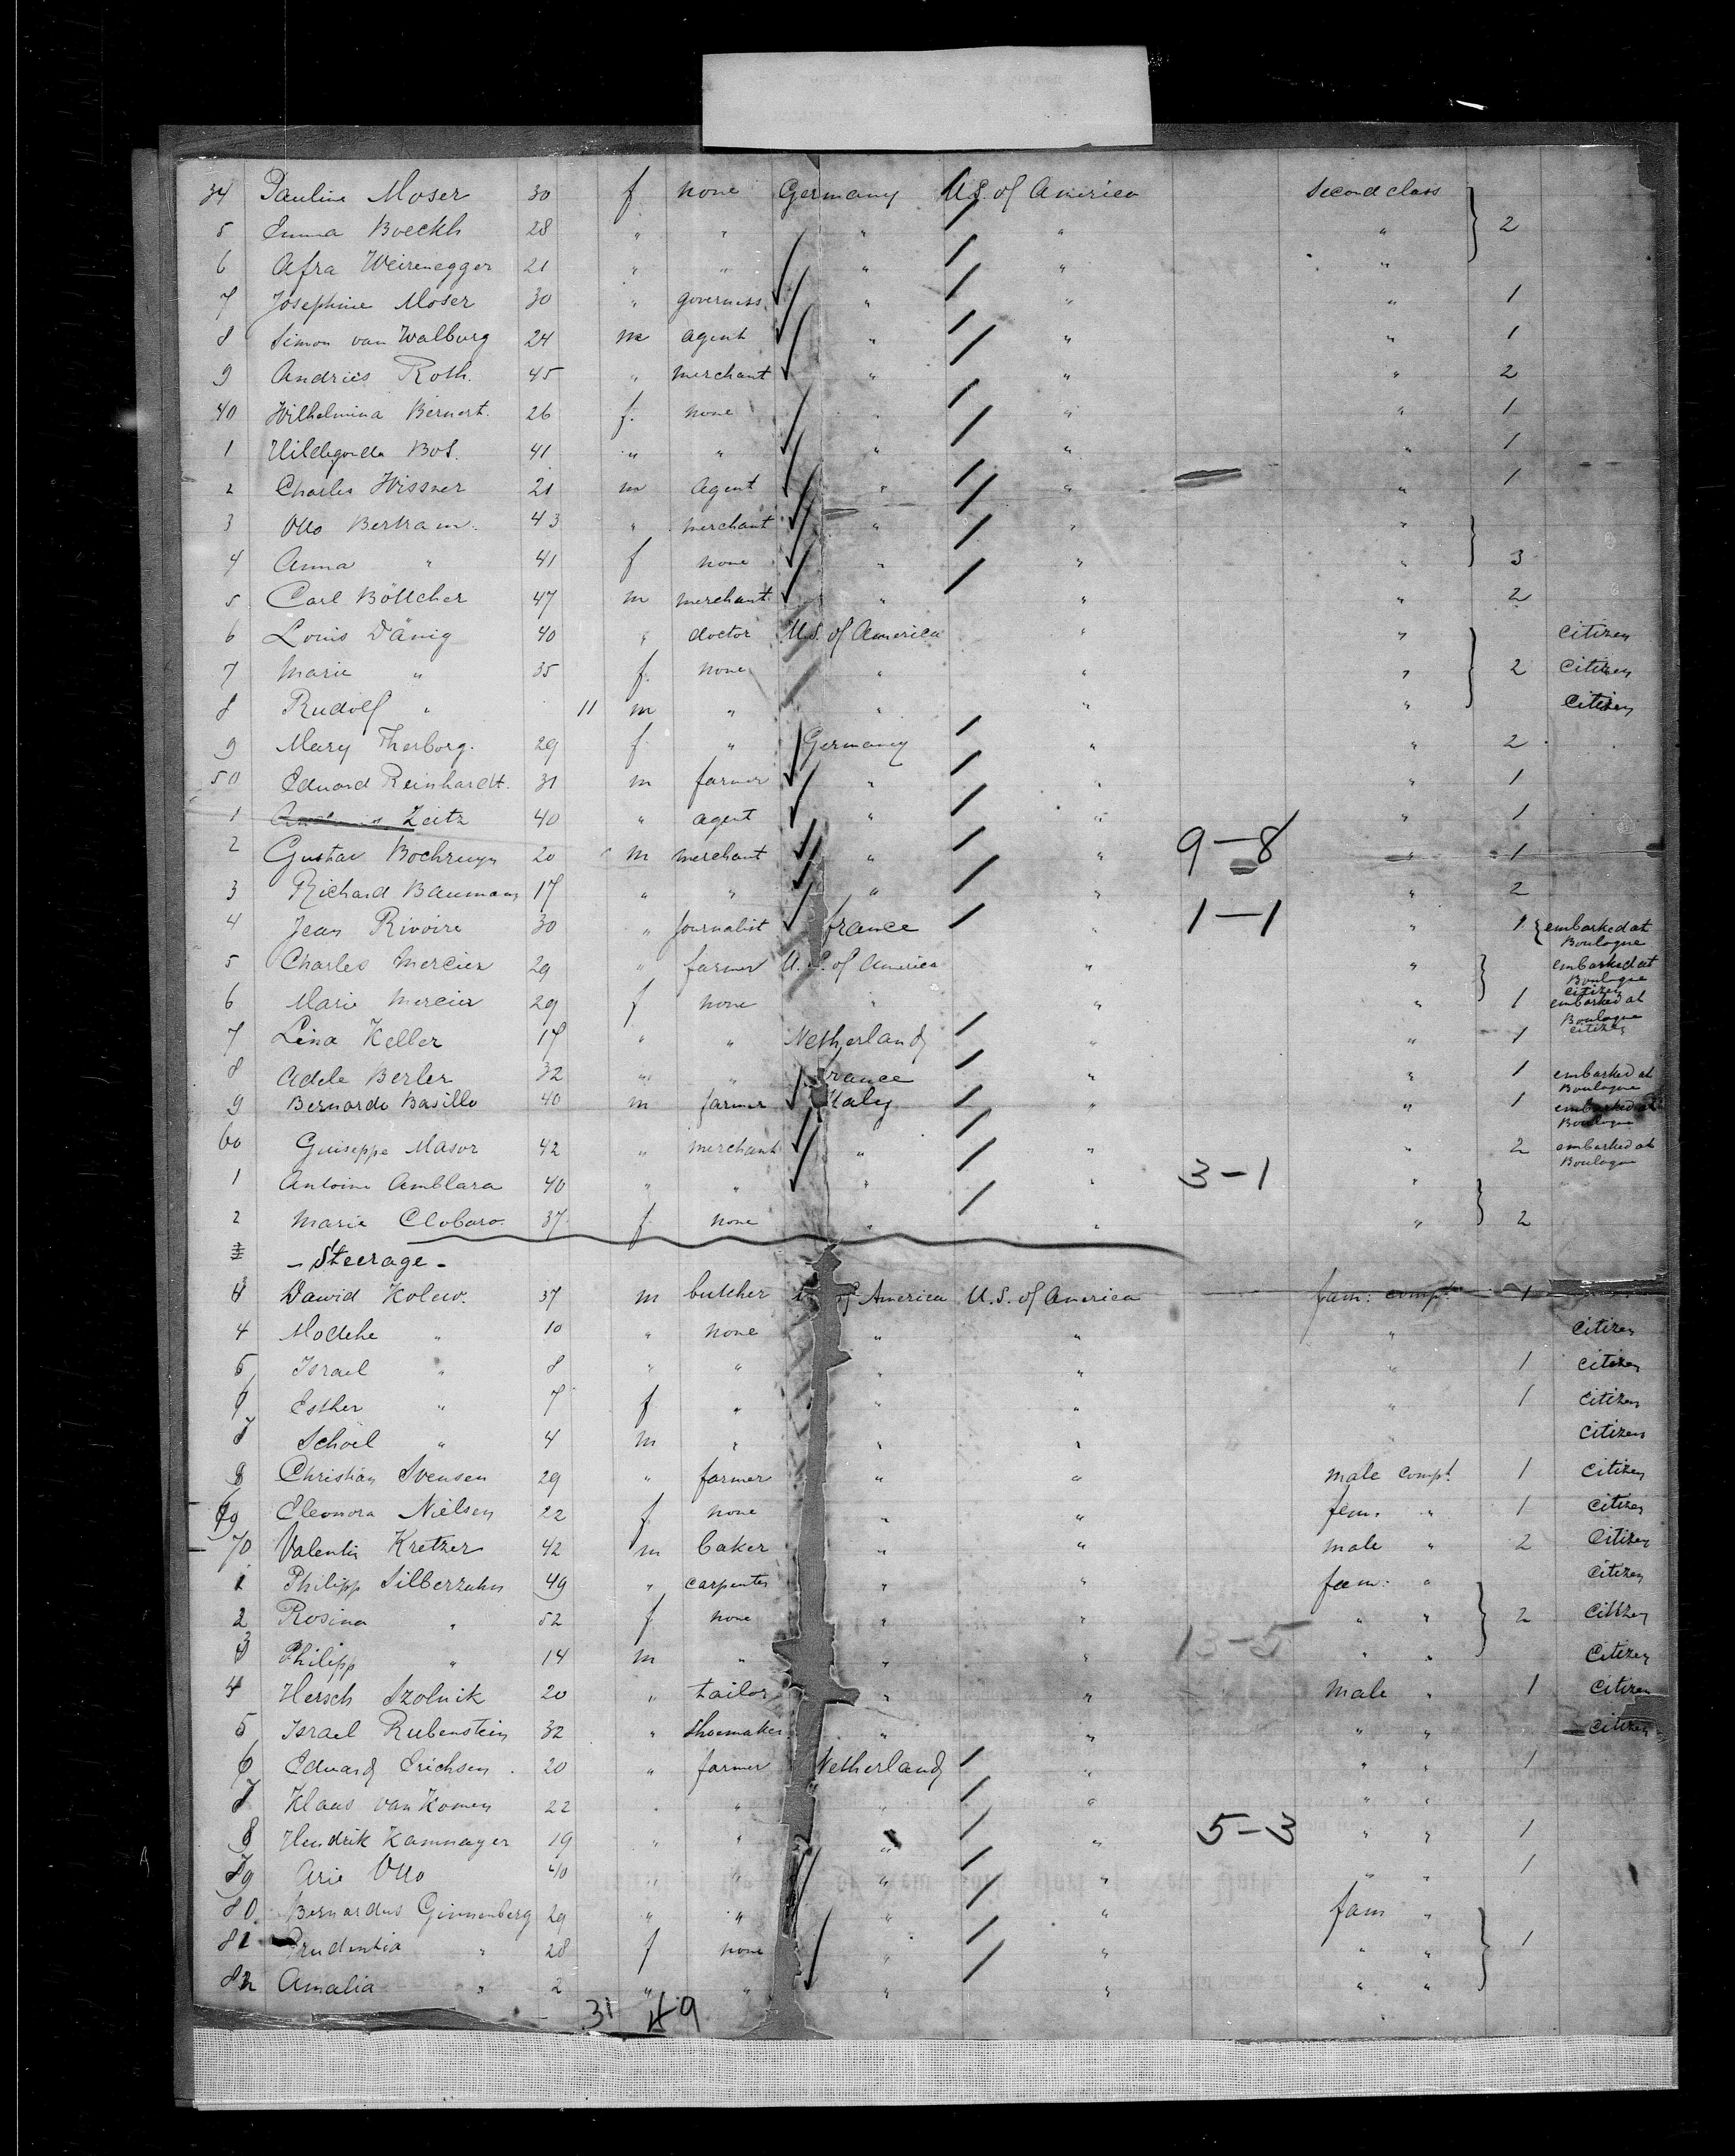 34 Pauline Moser 30 f none Germany U.S. of America Second class
5 Emma Boeckh 28 " " " " " 2
6 Afra Weirenegger 21 " " " " "
7 Josephine Moser 30 " governess " " " 1
8 Simon van Walburg 24 m agent " " " 1
9 Andries Roth. 45 " merchant " " " 2
40 Wilhelmina Bernert. 26 f. none " " " 1
1 Hildegonda Bos. 41 " " " " " 1
2 Charles Wissner 21 m agent " " " 1
3 Otto Bertram. 43 " merchant " " "
4 Anna " 41 f none " " " 3
5 Carl Böttcher 47 m merchant " " " 2
6 Louis Dänig 40 " doctor U.S. of America " " citizen
7 Marie " 35 f. none " " " 2 citizen
8 Rudolf " 11 m " " " " citizen
9 Mary Therborg. 29 f. " Germany " " 2
50 Eduard Reinhardt. 31 m farmer " " " 1
1 Zeitz 40 " agent " " " 1
2 Gustav 20 m merchant " " 9-8 " 1
3 Richard Baumann 17 " " " " " 2
4 Jean Rivoire 30 " journalist france " 1-1 " 1 embarked at Boulogne
5 Charles Mercier 29 " farmer U.S. of America " " embarked at Boulogne citizen
6 Marie Mercier 29 f none " " " 1 embarked at Boulogne citizen
7 Lina Keller 17 " " Netherland " " 1
8 Adele Berler 32 " " france " " 1 embarked at Boulogne
9 Bernardo Basillo 40 m farmer Italy " " 1 embarked at Boulogne
60 Guiseppe Masor 42 " merchant " " " 2 embarked at Boulogne
1 Antoine Amblara 40 " " " " 3-1 "
2 Marie Clobaro 37 f none " " " 2
- Steerage -
3 Dawid Kolew. 37 m butcher of America U.S. of America fam: compt. 1
4 10 " none " " " citizen
5 Israel " 8 " " " " " 1 citizen
6 Esther " 7 f " " " " 1 citizen
7 Schoel " 4 m " " " citizen
8 Christian Svensen 29 " farmer " " male compt. 1 citizen
69 Eleonora Nielsen 22 f none " " fem. " 1 citizen
70 Valentin Kretzer 42 m baker " " male " 2 citizen
1 Philipp Silberzahn 49 " carpenter " " fam: " citizen
2 Rosina " 52 f none " " " " 2 citizen
3 Philipp " 14 m " " " 13-5 " " citizen
4 Hersch Szolnik 20 " tailor " " male " 1 citizen
5 Israel Rubenstein 32 " shoemaker " " " " citizen
6 Eduard Erichsen 20 " farmer Netherland " " " 1
7 Klaas van Komen 22 " " " " " "
8 Hendrik Kamnayer 19 " " " " 5-3 " " 1
79 Arie Otto 40 " " " " " " 1
80 Bernardus Ginnenberg 29 " " " " fam "
81 Prudentia " 28 f none " " " " 1
82 Amalia " 2 " " " " " "
31 49